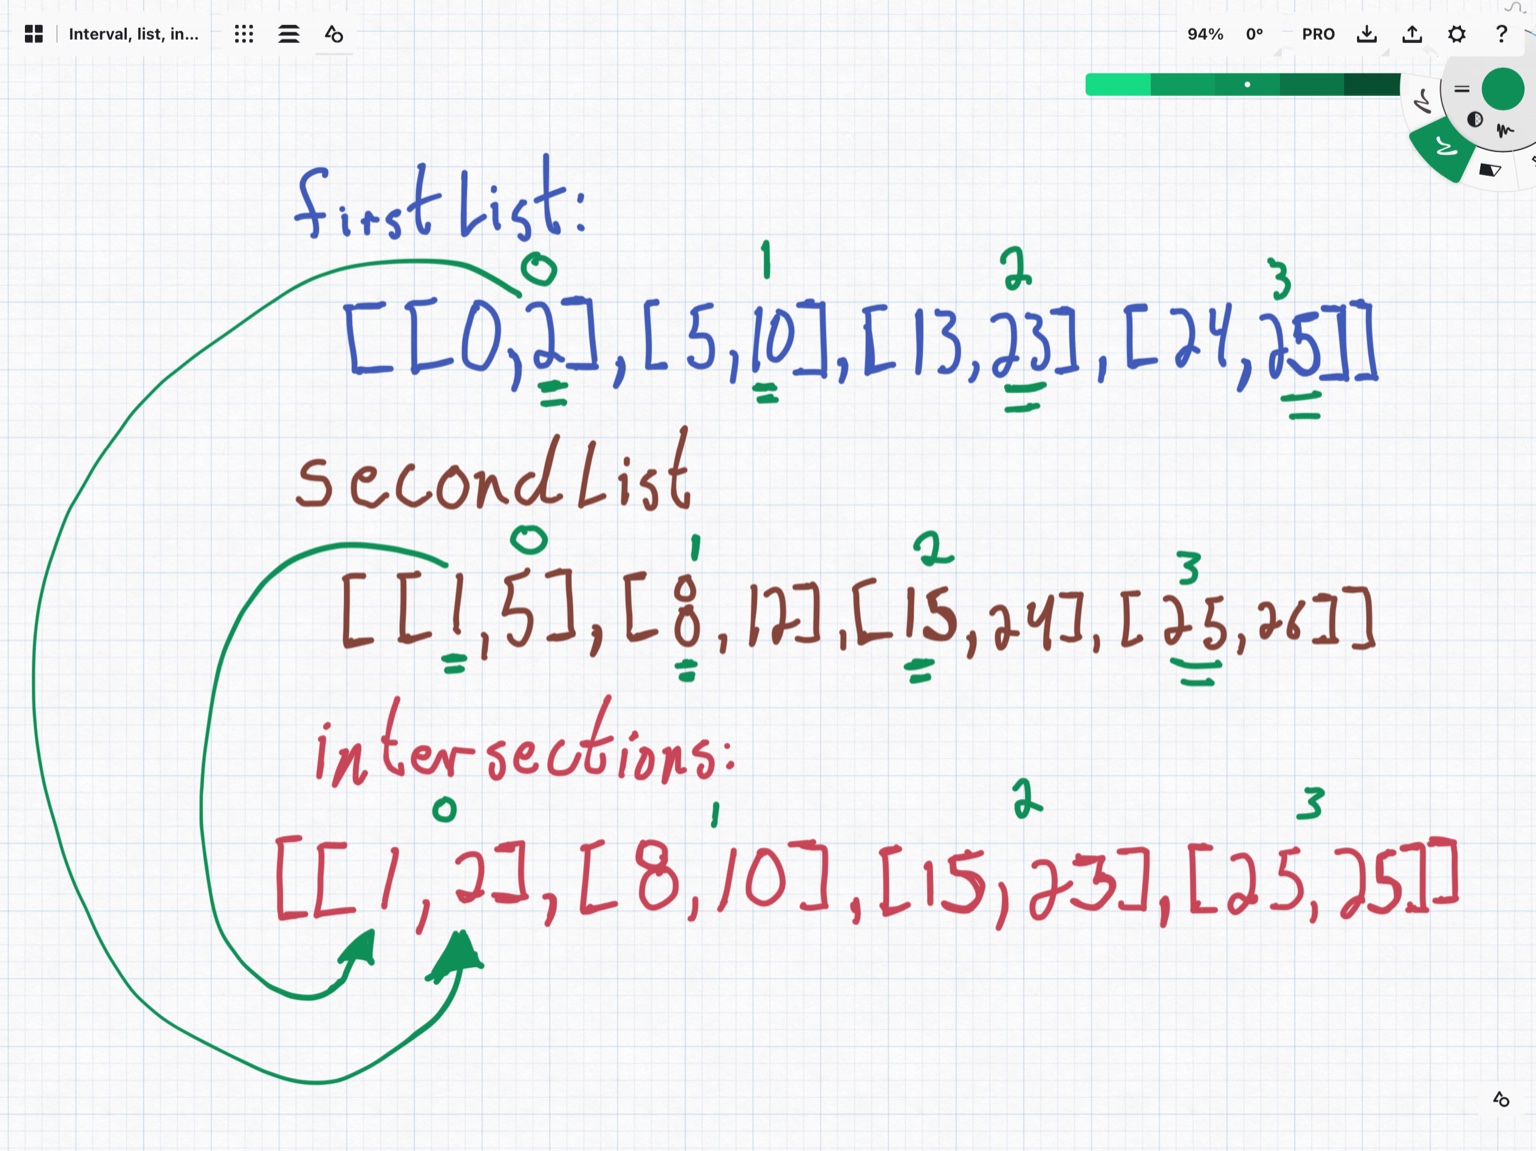 Interval, list, in...
94% 0° PRO ?
firstList:
0 1 2 3
[[0,2],[5,10],[13,23],[24,25]]
secondList
0 1 2 3
[[1,5],[8,12],[15,24],[25,26]]
intersections:
0 1 2 3
[[1,2],[8,10],[15,23],[25,25]]